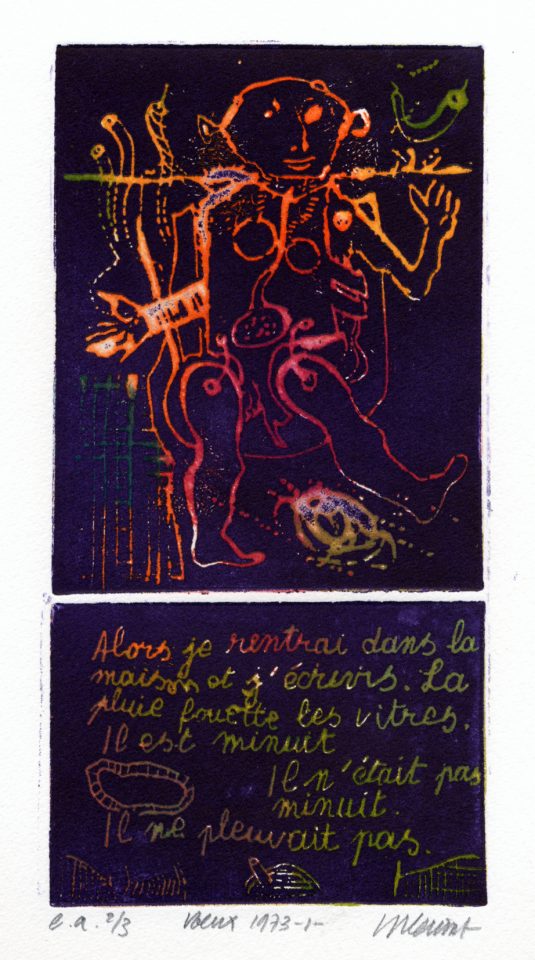 Alors je rentrai dans la
maison et j'écrivis. La
pluie fouette les vitres.
Il est minuit
Il n'était pas
minuit.
Il ne pleuvait pas.
e.a. 2/3 Vœux 1973-1-